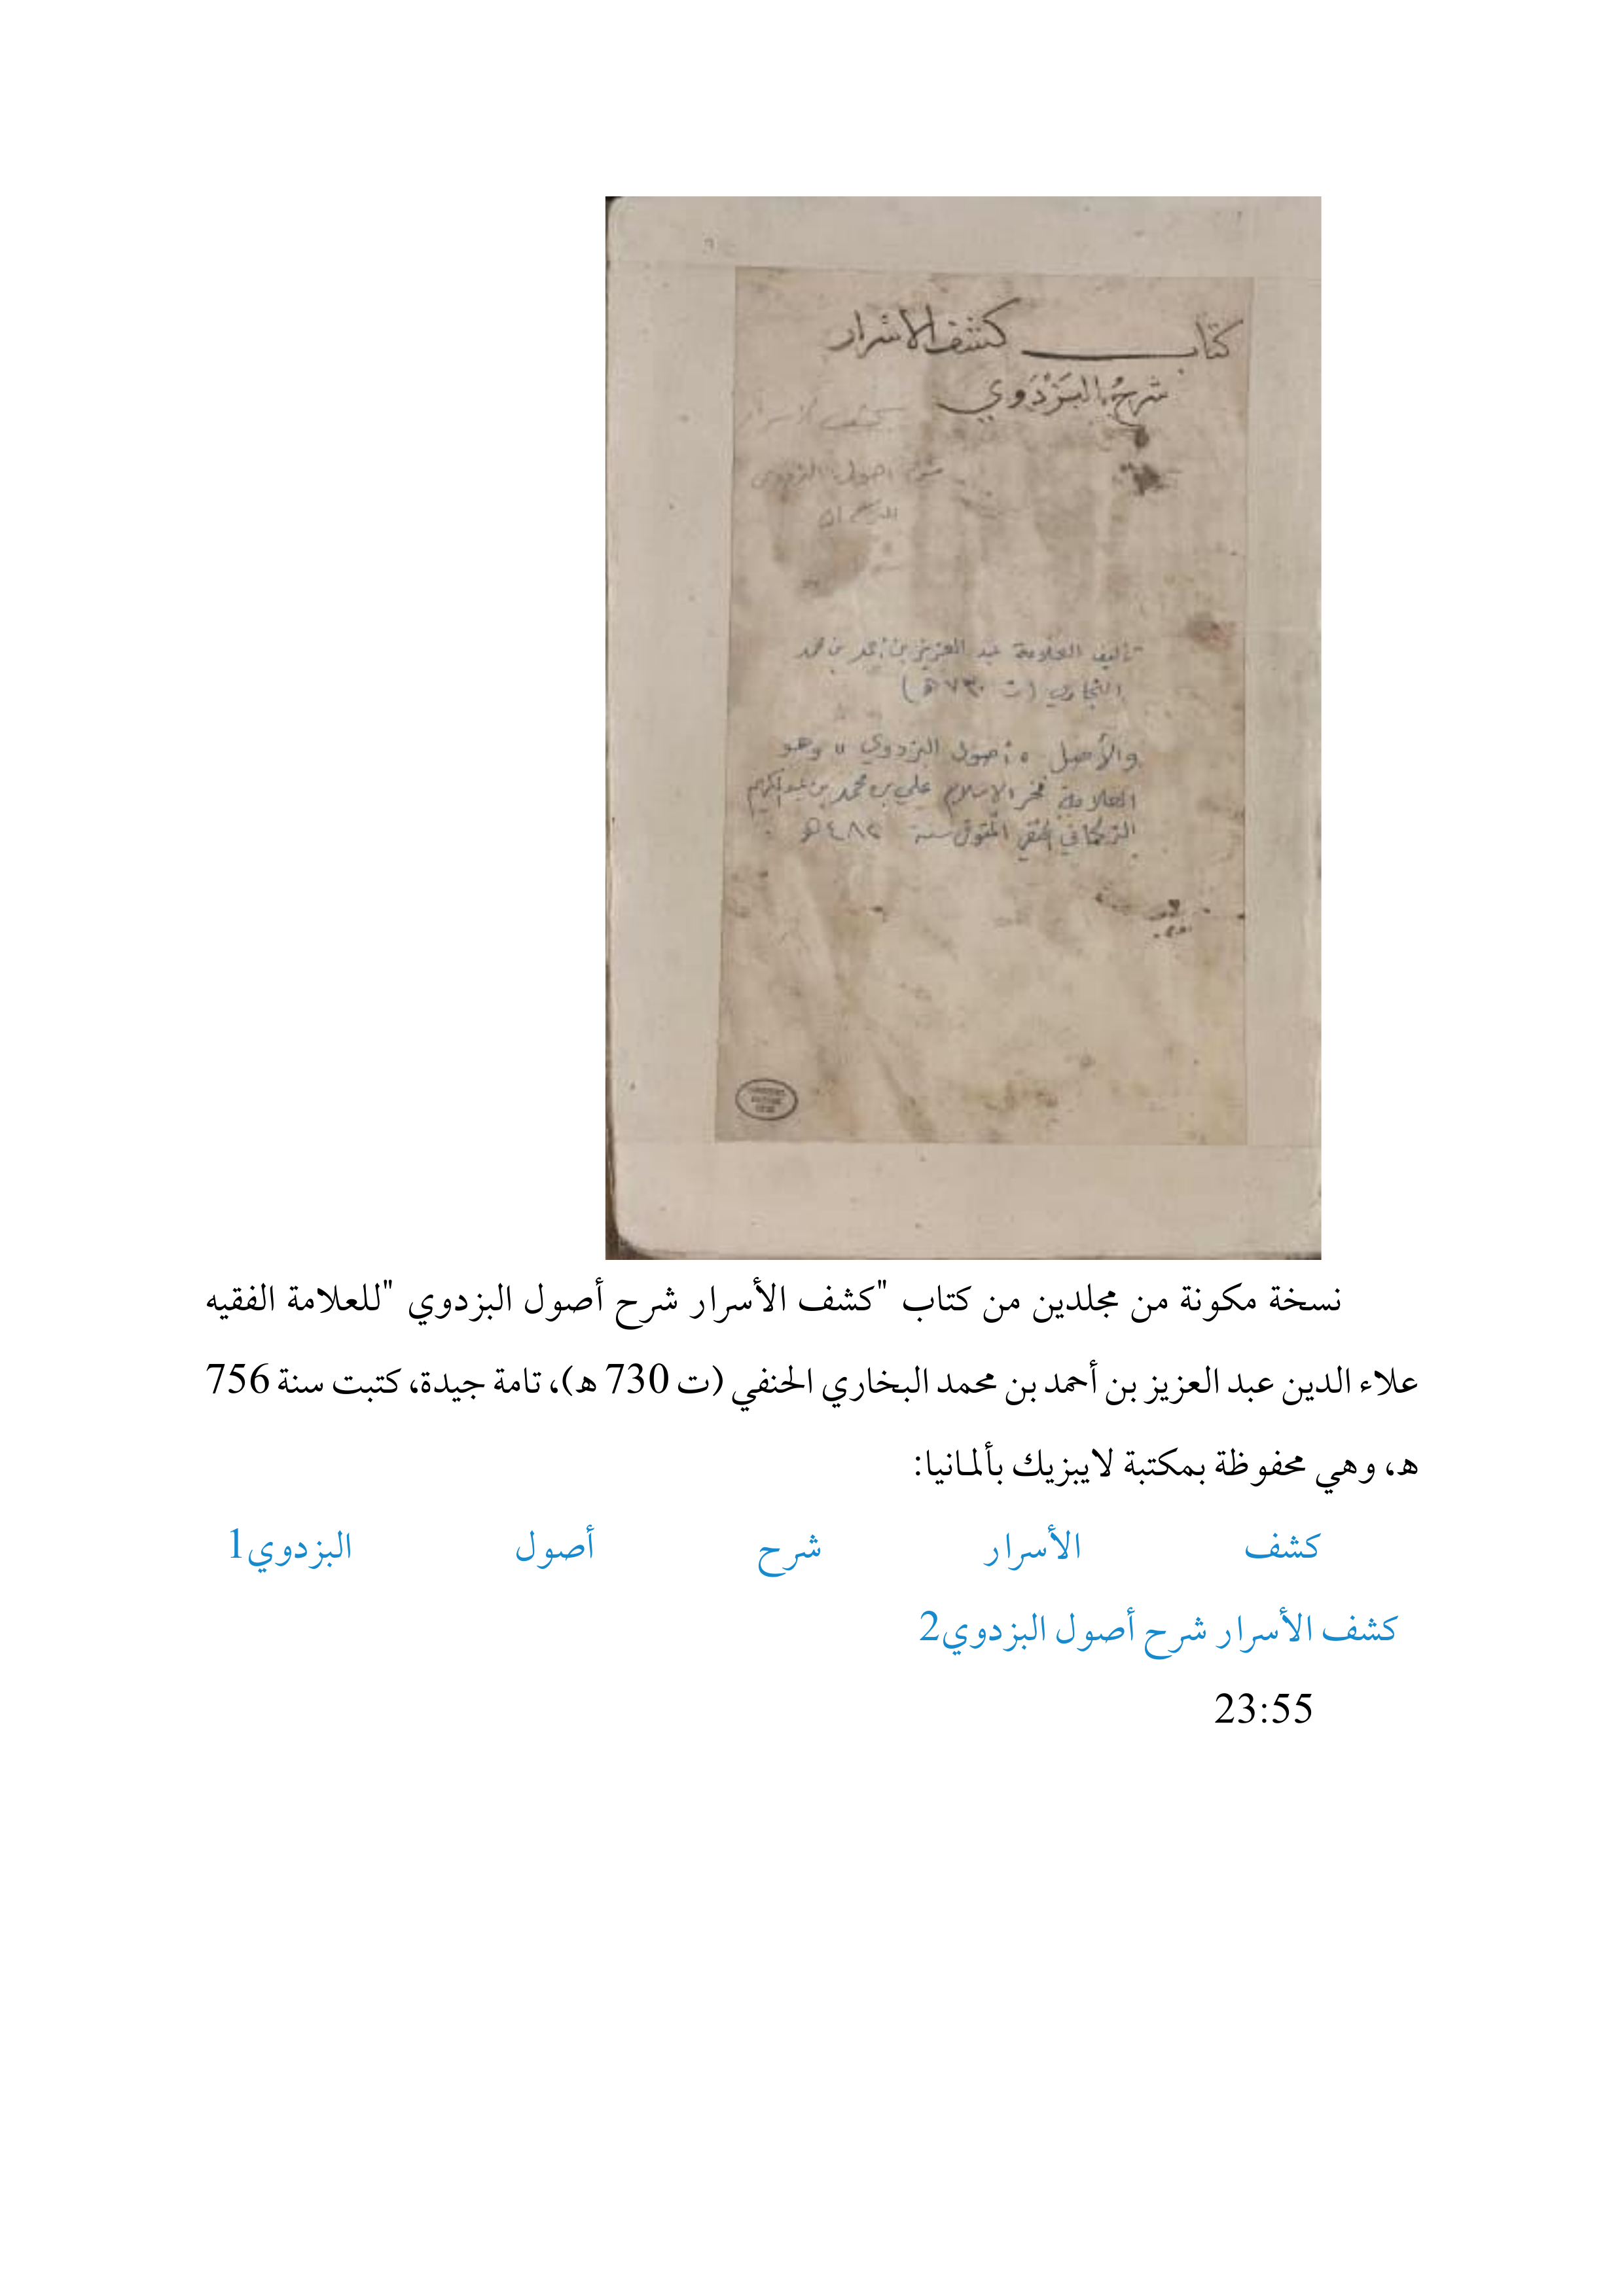 كتاب كشف الاسرار
شرح البَزْدَوي
كشف الاسرار
شرح اصول البزدوي
تأليف العلامة عبد العزيز بن أحمد بن محمد
البخاري (ت ٧٣٠ هـ)
والأصل " أصول البزدوي " وهو
العلامة فخر الاسلام علي بن محمد بن
الحنفي المتوفى سنة ٤٨٢ هـ
نسخة مكونة من مجلدين من كتاب "كشف الأسرار شرح أصول البزدوي "للعلامة الفقيه
علاء الدين عبد العزيز بن أحمد بن محمد البخاري الحنفي (ت 730 ه)، تامة جيدة، كتبت سنة 756
ه، وهي محفوظة بمكتبة لايبزيك بألمانيا:
كشف الأسرار شرح أصول البزدوي1
كشف الأسرار شرح أصول البزدوي2
23:55